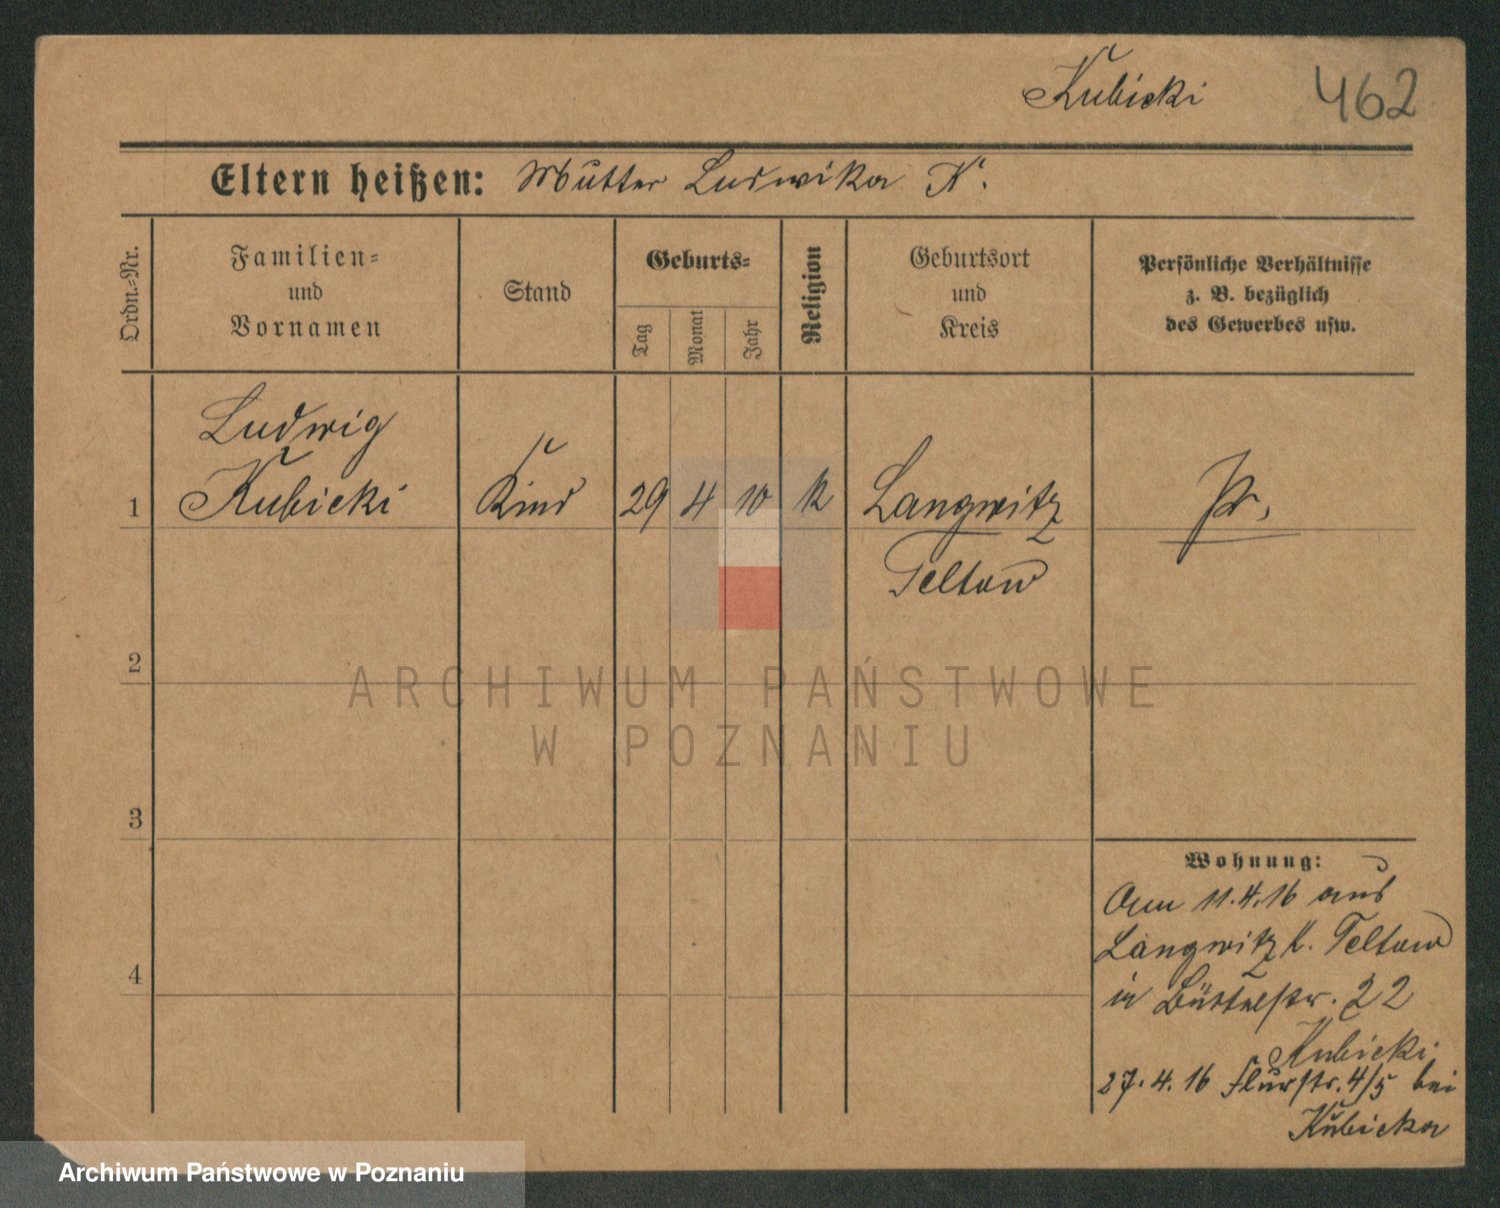 Kubicki 462
Eltern heißen: Mutter Ludwika K.
Ordn.-Nr.
Familien-
und
Vornamen
Stand
Geburts-
Tag
Monat
Jahr
Religion
Geburtsort
und
Kreis
Persönliche Verhältnisse
z. B. bezüglich
des Gewerbes usw.
Ludwig
1 Kubicki Kind 29 4 10 k Langwitz Pr.
Teltow
2
3
4
Wohnung:
Am 11.4.16 aus
Langwitz K. Teltow
in Büttelstr. 22
Kubicki
27.4.16 Flurstr. 4/5 bei
Kubicka
ARCHIWUM PAŃSTWOWE
W POZNANIU
Archiwum Państwowe w Poznaniu